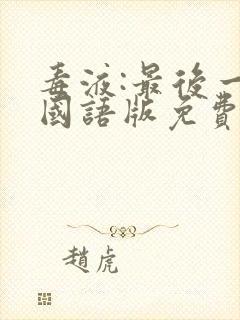 毒液:最後一
國語版免費
趙虎